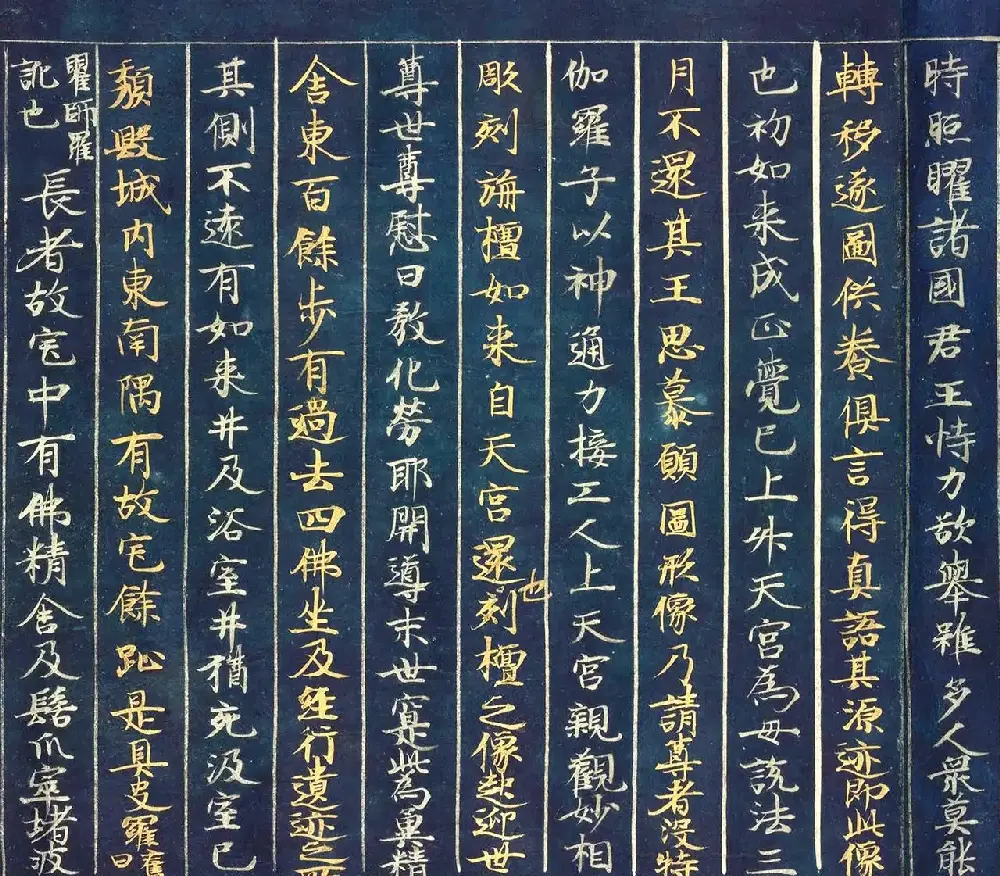 時照曜諸國君王恃力欲舉雖多人衆莫能
轉移遂圖供養俱言得真語其源迹即此像
也初如来成正覺已上昇天宫為母說法三
月不還其王思慕願圖形像乃請尊者没特
伽羅子以神通力接工人上天宫親觀妙相
彫刻旃檀如来自天宫還也刻檀之像起迎世
尊世尊慰曰教化勞耶開導末世寔此為冀精
舍東百餘步有過去四佛坐及經行遺迹之所
其側不遠有如来井及浴室井猶充汲室已
頽毀城内東南隅有故宅餘趾是具史羅舊曰
瞿師羅訛也長者故宅中有佛精舍及髮爪窣堵波